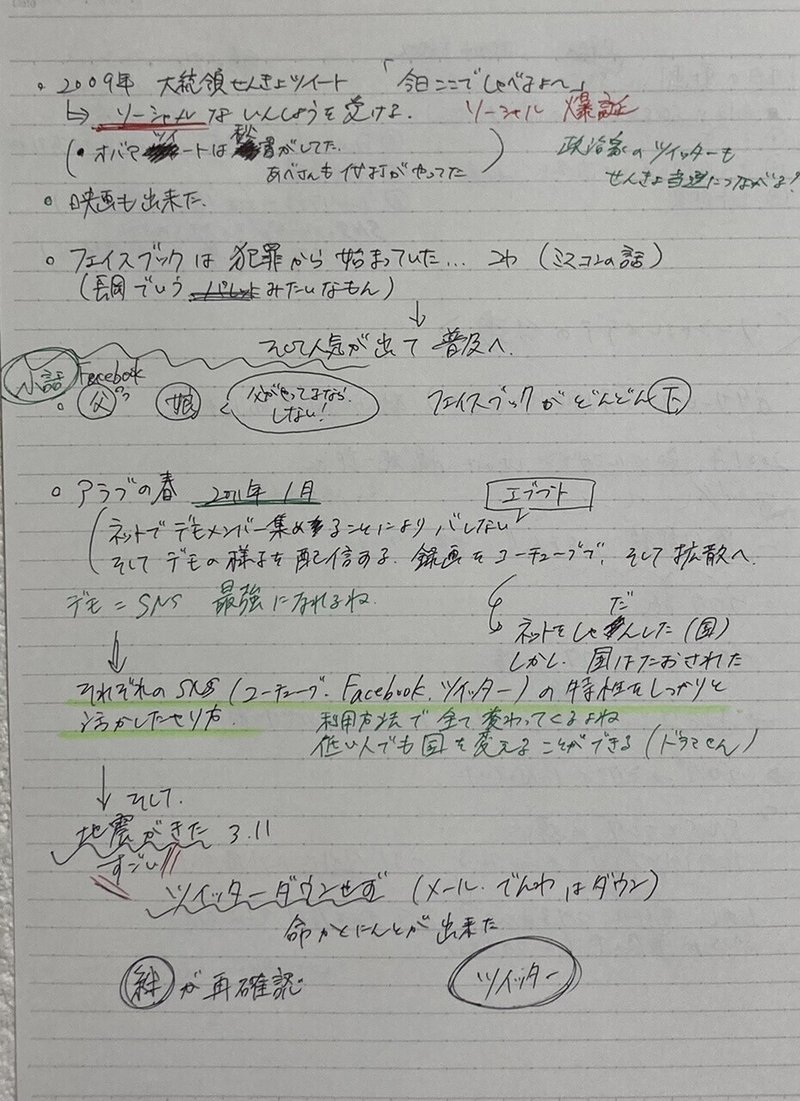 。2009年 大統領せんきょツイート 「今日ここでしゃべるよ〜」
↳ ソーシャルないんしょうを受ける. ソーシャル 爆誕
(・オバマツイートは秘書がしてた.
あべさんも代打がやってた)
政治家のツイッターも
せんきょ当選につながる!
。映画も出来た.
。フェイスブックは犯罪から始まっていた... コワ (ミスコンの話)
(長岡でいうパレットみたいなもん)
↓
そして人気が出て普及へ.
小話 Facebook
。父 娘 父がやってるなら、しない! フェイスブックがどんどん下
。アラブの春 2011年1月 エジプト
(ネットでデモメンバー集めることによりバレない
そしてデモの様子を配信する. 録画をユーチューブで, そして拡散へ.
デモ=SNS 最強になれるね.
ネットをしゃだんした(国)
しかし. 国はたおされた
↓
それぞれのSNS (ユーチューブ. Facebook. ツイッター) の特性をしっかりと
活かしたやり方.
利用方法で全て変わってくるよね
低い人でも国を変えることができる (ドラマせん)
↓ そして.
地震がきた 3.11
すごい!!
ツイッターダウンせず (メール. でんわはダウン)
命かくにんとが出来た
絆が再確認 ツイッター